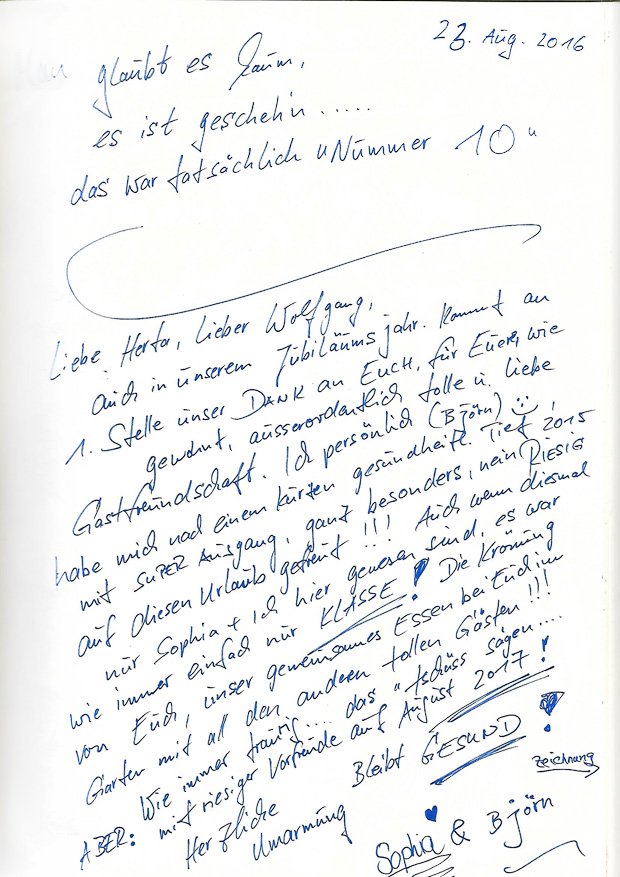 23. Aug. 2016
Man glaubt es kaum,
es ist gescheh'n .....
das war tatsächlich "Nummer 10"
Liebe Herta, Lieber Wolfgang,
auch in unserem Jubiläumsjahr. kommt an
1. Stelle unser DANK an EUCH, für Euere, wie
gewohnt, ausserordentlich tolle u. liebe
Gastfreundschaft. Ich persönlich (Björn) ☺,
habe mich nach einem kurzen gesundheitl. Tief 2015
mit SUPER AUSGANG, ganz besonders, nein RIESIG
auf diesen Urlaub gefreut !!! Auch wenn diesmal
nur Sophia + Ich hier gewesen sind, es war
wie immer einfach nur KLASSE! Die Krönung
von Euch, unser gemeinsames Essen bei Euch im
Garten mit all den anderen tollen Gästen !!!
Wie immer traurig.... das "tschüss sagen....
ABER: mit riesiger Vorfreude auf August 2017!
Herzliche Bleibt GESUND!
Umarmung
Zeichnung
Sophia & Björn